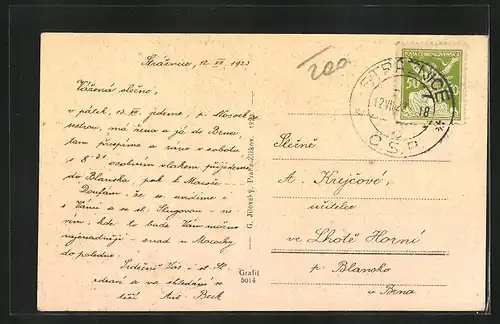 Strážnice, 12 VII 1923
200
Vážená slečno,
v pátek, 13. VII. jedeme, p. Macek
sestrou, má žena a já do Brna,
tam přespíme a ráno v sobotu
s 8 31 osobním vlakem přijedeme
do Blanska, pak k Macoše.
Doufám, že se uvidíme s
Vámi a se sl. Slugovou - ne
vím, kde to bude Vám možno
nejsnadněji - snad u Macochy
do poledne.
Srdečně Vás - st. S
zdraví a na shledání se
těší Ant. Beck
G. Jilovský, Praha-Žižkov.
Grafit
5014
POŠTA ČESKOSLOVENSKÁ
50
STRÁŽNICE
12 VII 18
Č.S.P.
Slečně
A. Krejčové,
učitelce
ve Lhotě Horní
p. Blansko
u Brna